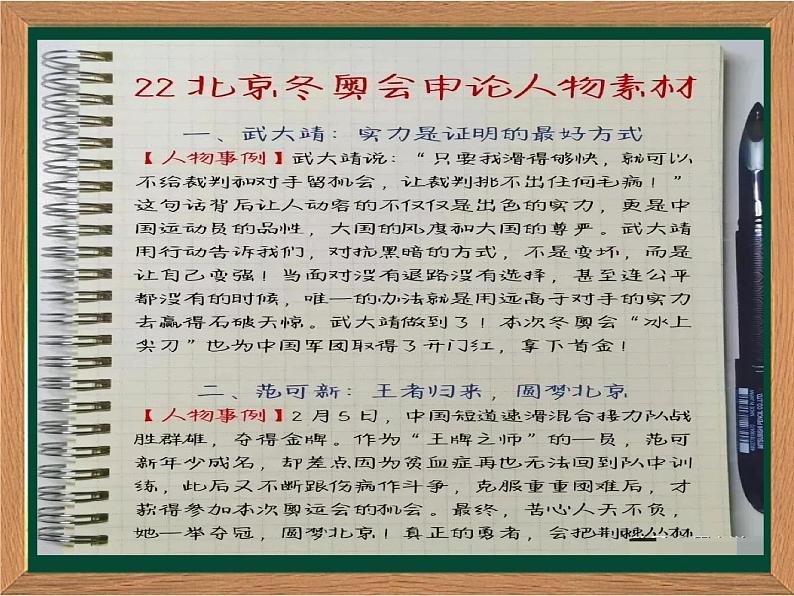 22北京冬奥会申论人物素材
一、武大靖：实力是证明的最好方式
【人物事例】武大靖说：“只要我滑得够快，就可以
不给裁判和对手留机会，让裁判挑不出任何毛病！”
这句话背后让人动容的不仅仅是出色的实力，更是中
国运动员的品性，大国的风度和大国的尊严。武大靖
用行动告诉我们，对抗黑暗的方式，不是变坏，而是
让自己变强！当面对没有退路没有选择，甚至连公平
都没有的时候，唯一的办法就是用远高于对手的实力
去赢得石破天惊。武大靖做到了！本次冬奥会“冰上
尖刀”也为中国军团取得了开门红，拿下首金！
二、范可新：王者归来，圆梦北京
【人物事例】2月5日，中国短道速滑混合接力队战
胜群雄，夺得金牌。作为“王牌之师”的一员，范可
新年少成名，却差点因为贫血症再也无法回到队中训
练，此后又不断跟伤病作斗争，克服重重困难后，才
获得参加本次奥运会的机会。最终，苦心人天不负，
她一举夺冠，圆梦北京！真正的勇者，会把荆棘丛林
MITSUBISHI PENCIL CO.,LTD.